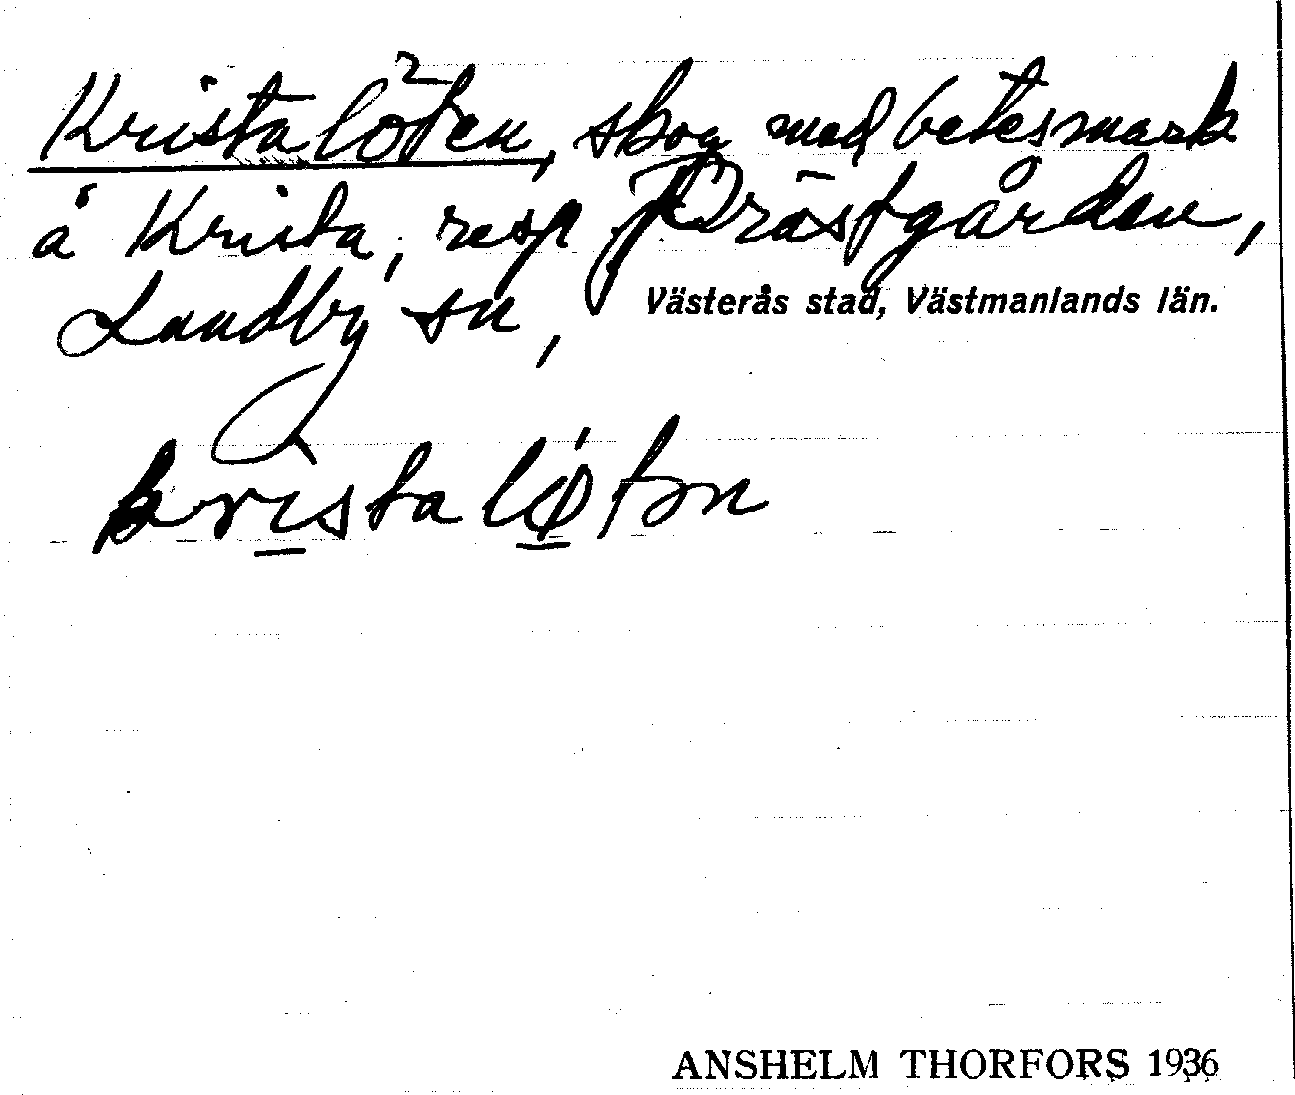 Kristalöten, skog med betesmark
å Krista, resp Prästgården,
Lundby sn, Västerås stad, Västmanlands län.
kristaløton
ANSHELM THORFORS 1936